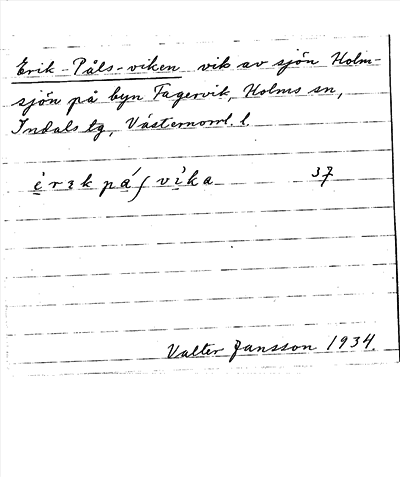 Erik-Påls-viken vik av sjön Holm-
sjön på byn Fagervik, Holms sn,
Indals tg, Västernorrl. l.
37
Valter Jansson 1934.